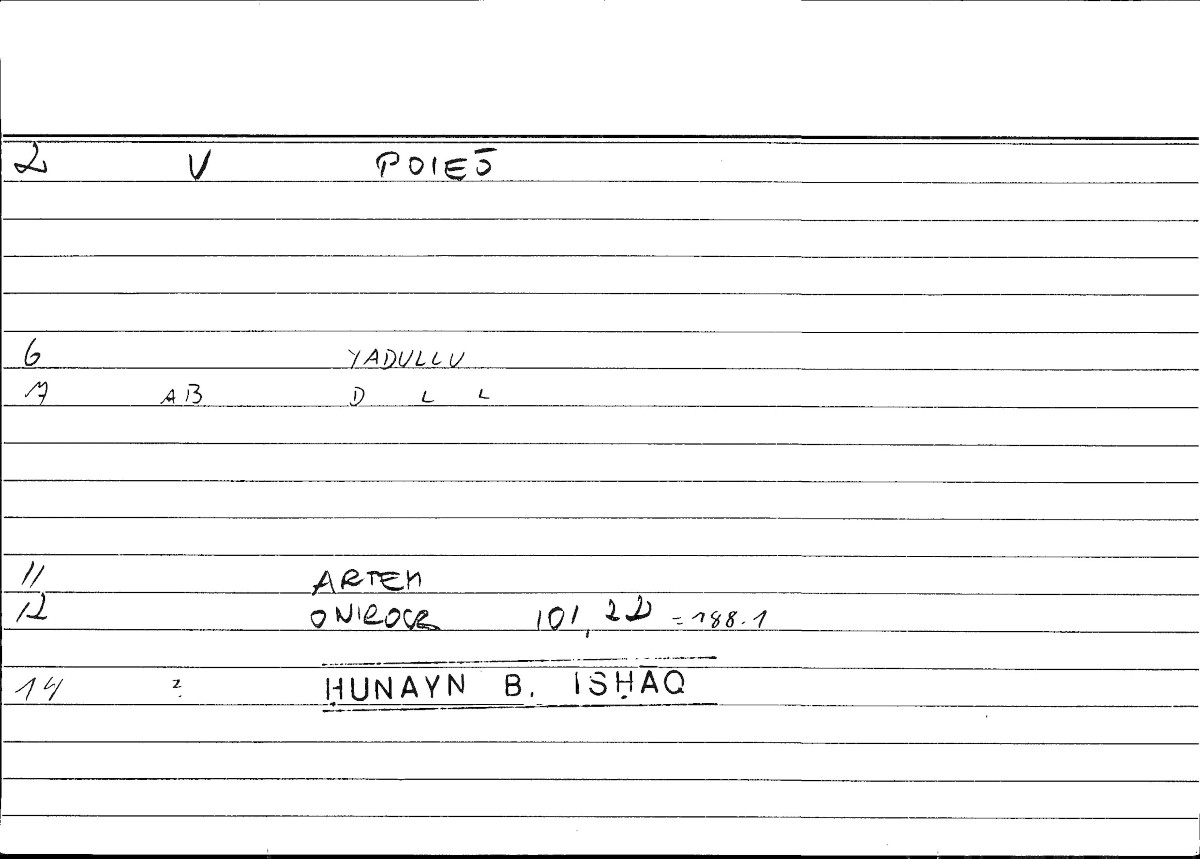 2 V POIEŌ
6 YADULLU
7 AB D L L
11 ARTEM
12 ONIROCR 101,22 =188.1
14 ? ḤUNAYN B. ISḤAQ